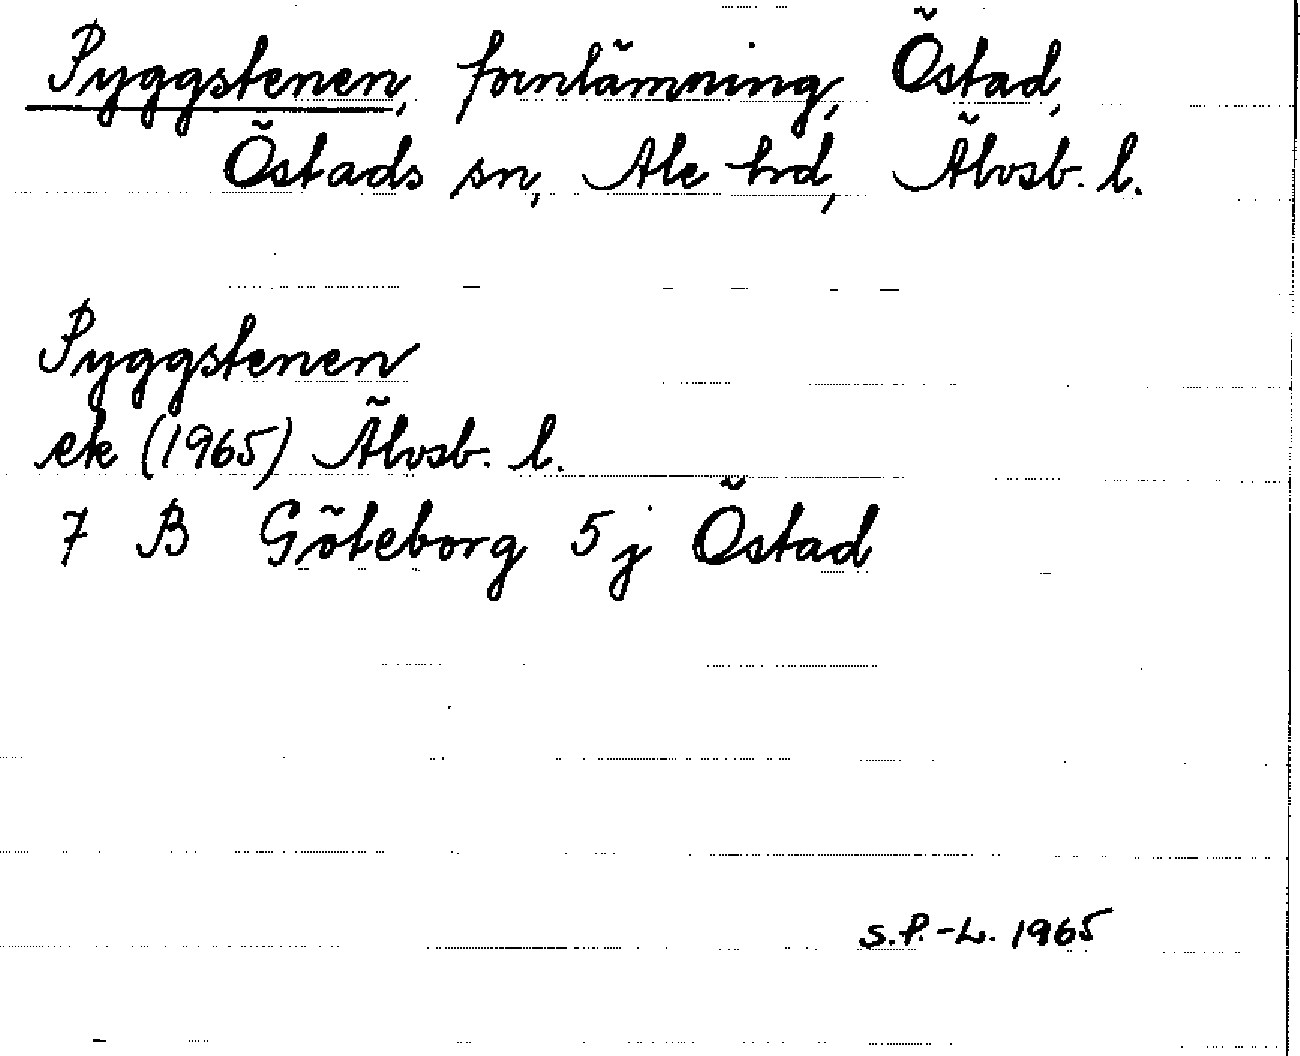 Pyggstenen, fornlämning, Östad,
Östads sn, Ale hd, Älvsb. l.
Pyggstenen
ek (1965) Älvsb. l.
7 B Göteborg 5 j Östad
S.P.-L. 1965